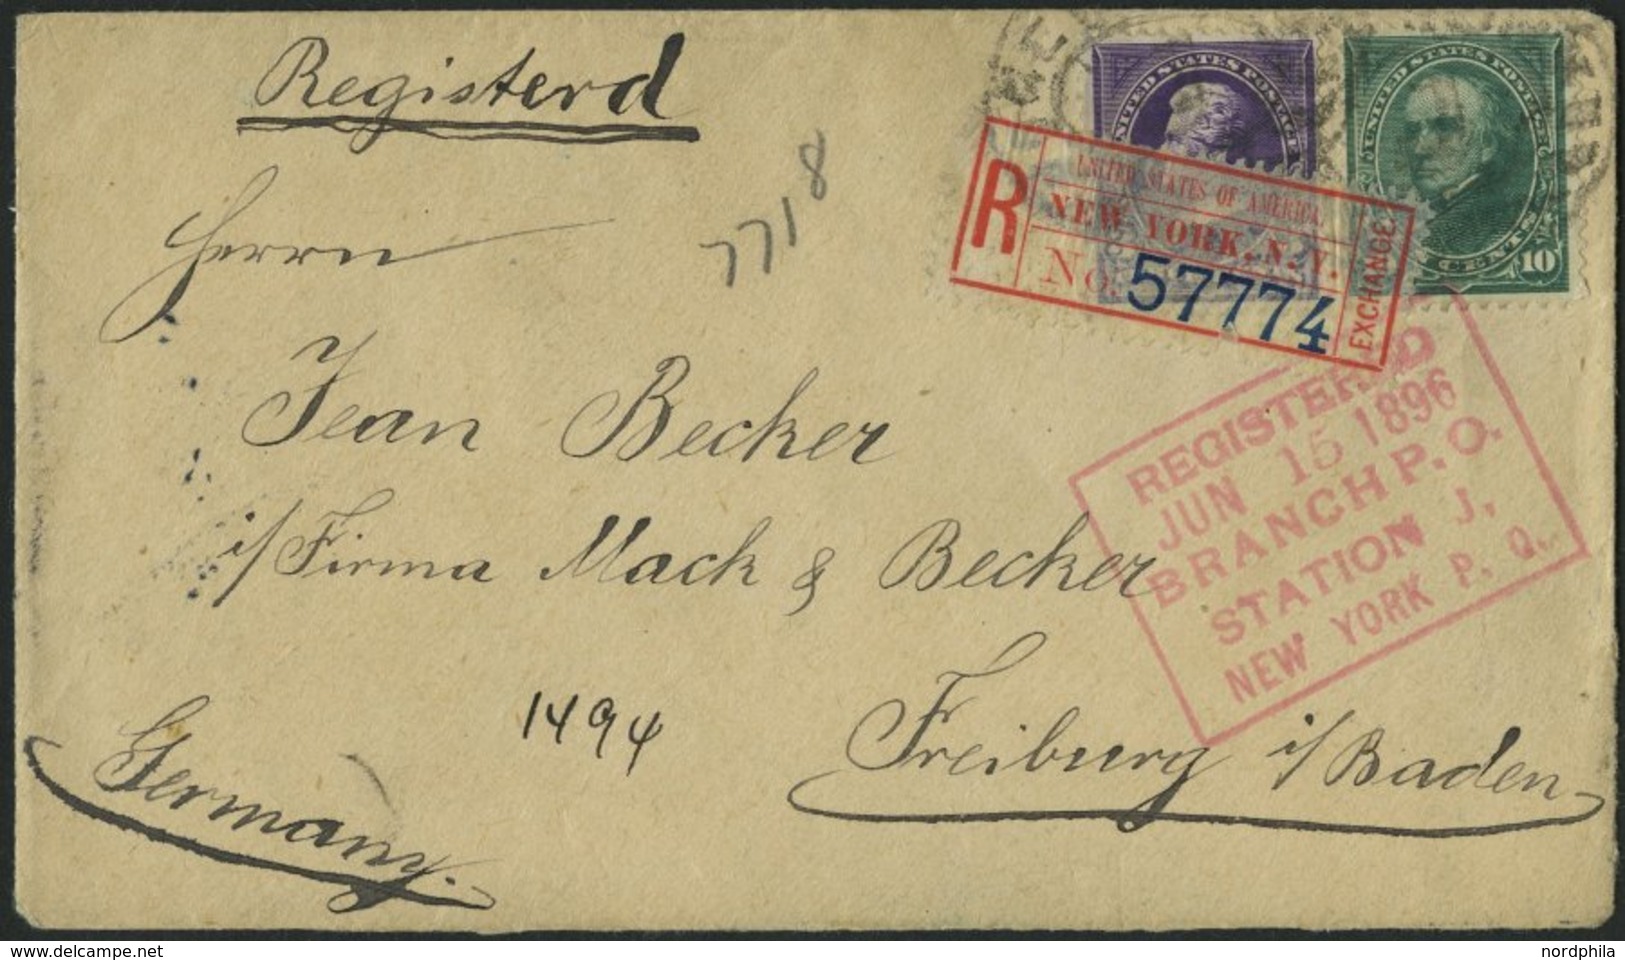 Registerd
7718
UNITED STATES POSTAGE
UNITED STATES POSTAGE
CENTS
10
R
UNITED STATES OF AMERICA.
NEW YORK, N. Y.
No. 57774
EXCHANGE
Herrn
Jean Becker
i/Firma Mack & Becker
1494
Freiburg i/Baden
Germany.
REGISTERED
JUN 15 1896
BRANCH P. O.
STATION J,
NEW YORK P. O.
delcampe.net
nordphila